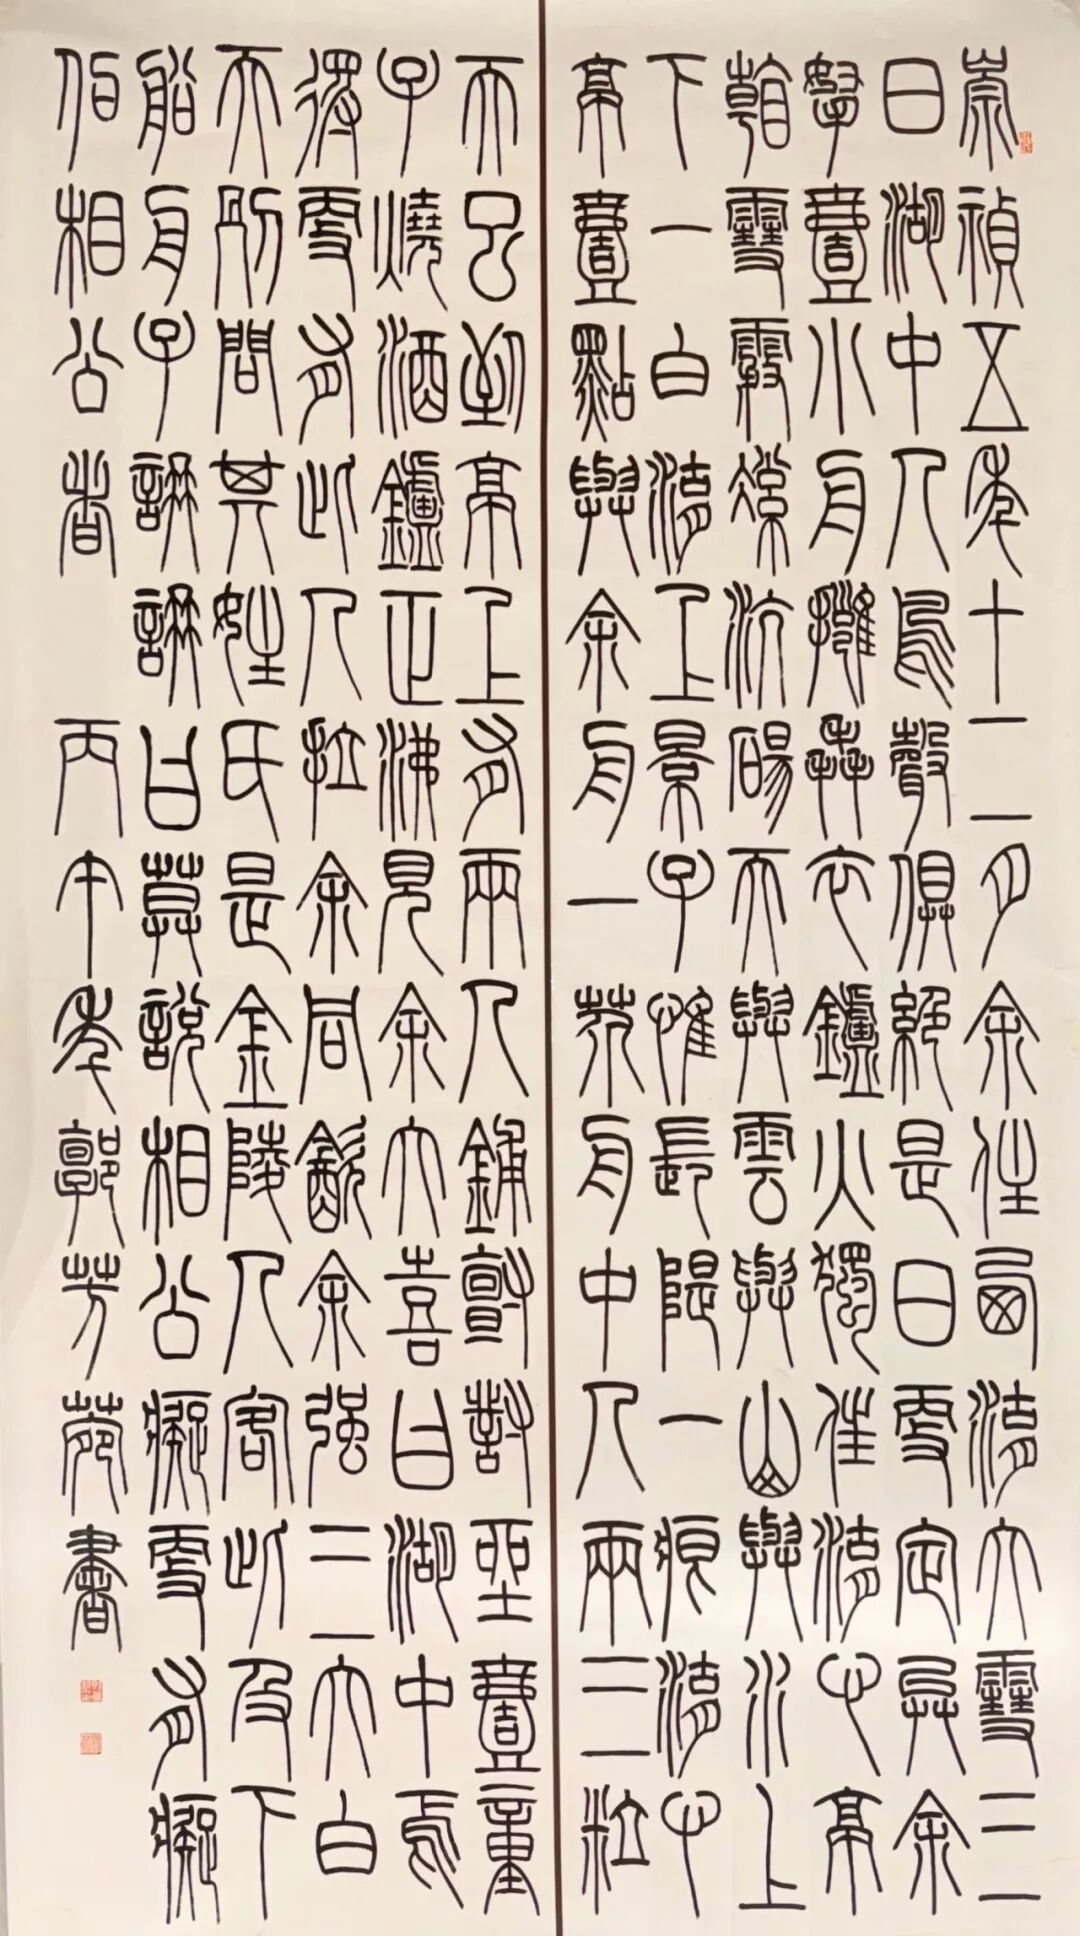 崇禎五年十二月余住西湖大雪三
日湖中人鳥聲俱絕是日更定矣余
拏壹小舟擁毳衣鑪火獨往湖心亭
看雪霧凇沆碭天與雲與山與水上
下一白湖上景子惟長隄一痕湖心
亭壹點與余舟一芥舟中人兩三粒
而已到亭上有兩人鋪氈對坐壹童
子燒酒鑪正沸見余大喜曰湖中焉
得更有此人拉余同飲余强三大白
而別問其姓氏是金陵人客此及下
船舟子諵諵曰莫說相公癡更有癡
佀相公者 丙午年郭芳苑書